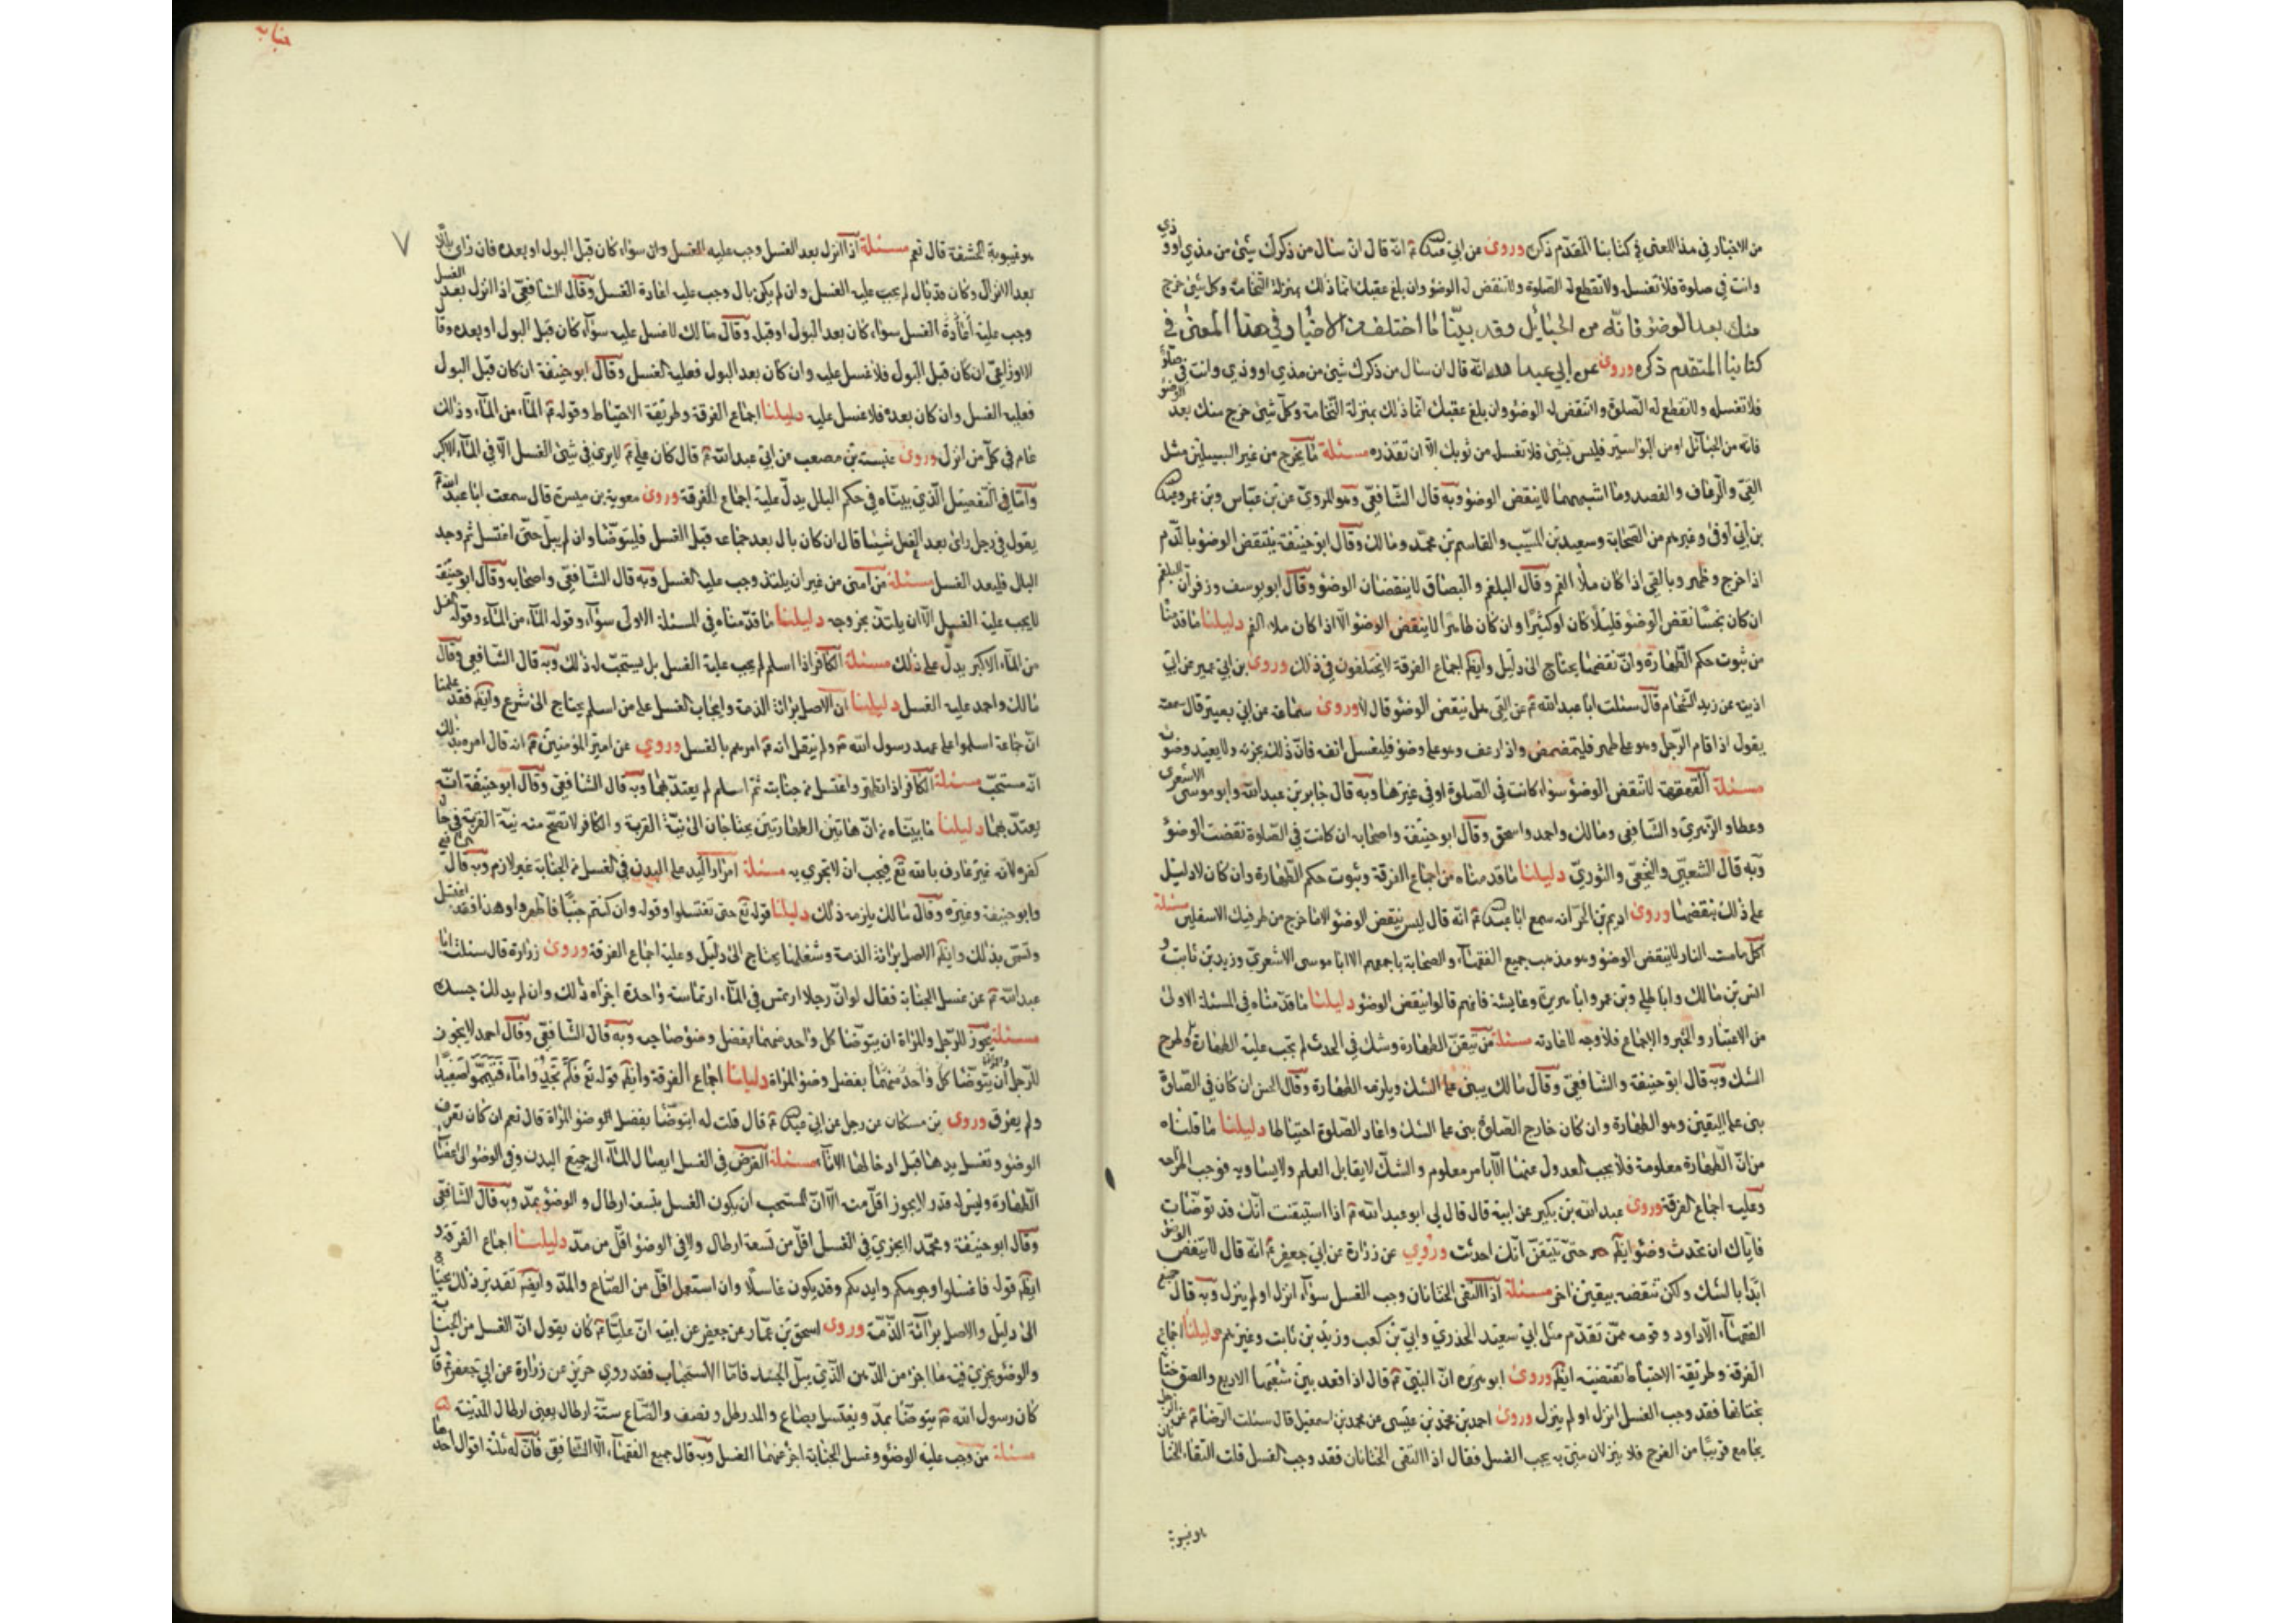 من الاخبار في هذا المعنى في كتابنا المقدّم ذكره وروى عن ابي عبد الله ع انه قال ان سال من ذكرك شيئ من مذي او وذي
وانت في صلوة فلا تغسل ولا تقطع له الصلوة ولا تنقض له الوضؤ وان بلغ عقبك انما ذلك بمنزلة النخامة وكل شيئ خرج
منك بعد الوضوء فانّه من الحبائل وقد بيّنّا ما اختلف من الاخبار في هذا المعنى في
كتابنا المتقدم ذكره وروى عن ابي عبد الله انه قال ان سال من ذكرك شيئ من مذي او وذي وانت في صلوة
فلا تغسله ولا تقطع له الصلوة ولا تنقض له الوضؤ وان بلغ عقبك انما ذلك بمنزلة النخامة وكلّ شيئ خرج منك بعد الوضؤ
فانه من الحبائل او من البواسير فليس بشيئ فلا تغسل من ثوبك الّا ان تقذره مسئلة ما يخرج من غير السبيلين مثل
القيّ والرعاف والفصد وما اشبههما لا ينقض الوضوء وبه قال الشافعيّ وهو المرويّ عن بن عبّاس وبن عمر وعبد الله
بن ابي اوفى وغيرهم من الصحابة وسعيد بن المسيّب والقاسم بن محمّد ومالك وقال ابو حنيفة ينتقض الوضوء بالدم
اذا خرج وظهر وبالقي اذا كان ملأ الفم وقال البلغم والبصاق لا ينقضان الوضوء وقال ابو يوسف وزفر ان البلغم
ان كان نجسًا نقض الوضوء قليلًا كان او كثيرًا وان كان طاهرًا لا ينقض الوضؤ الّا اذا كان ملا الفم دليلنا ما قدمنا
من ثبوت حكم الطهارة وانّ نقضها يحتاج الى دليل وايضًا اجماع الفرقة لا يختلفون في ذلك وروى بن ابي عمير عن ابن
اذينه عن زيد الشحام قال سئلت ابا عبد الله ع عن القي هل ينقض الوضؤ قال لا وروى سماعة عن ابي بصير قال سمعت
يقول اذا قام الرّجل وهو على طهر فليتمضمض واذا رعف وهو على وضؤ فليغسل انفه فانّ ذلك يجزيه ولا يعيد وضوءه
مسئلة القهقهة لا تنقض الوضؤ سواء كانت في الصّلوة او في غيرها وبه قال جابر بن عبد الله وابو موسى الاشعري
وعطا والزهري والشافعي ومالك واحمد واسحق وقال ابو حنيفة واصحابه ان كانت في الصلوة نقضت الوضؤ
وبه قال الشعبيّ والنخعيّ والثوريّ دليلنا ما قدمناه من اجماع الفرقة وثبوت حكم الطهارة وان كان لا دليل
على ذلك ينقضها وروى اديم بن الحرّ انه سمع ابا عبد الله ع انه قال ليس ينقض الوضؤ الا ما خرج من طرفيك الاسفلين مسئلة
اكل ما مست النار لا ينقض الوضؤ وهو مذهب جميع الفقهآء والصحابة باجمعهم الا ابا موسى الاشعريّ وزيد بن ثابت و
انس بن مالك وابا طلحة وبن عمر وابا هريرة وعايشة فانهم قالوا ينقض الوضؤ دليلنا ما قدّمناه في المسئلة الاولى
من الاعتبار والخبر والاجماع فلا وجه لاعادته مسئلة من تيقّن الطهارة وشك في الحدث لم تجب عليه الطهارة وطرح
الشك وبه قال ابو حنيفة والشافعيّ وقال مالك يبنى على الشك ويلزمه الطهارة وقال الحسن ان كان في الصلوة
بنى على اليقين وهو الطهارة وان كان خارج الصلوة بنى على الشك واعاد الصلوة احتياطا دليلنا ما قلناه
من انّ الطهارة معلومة فلا يجب العدول عنها الّا بامر معلوم والشكّ لا يقابل العلم ولا يساويه فوجب اطراحه
وعليه اجماع الفرقة وروى عبد الله بن بكير عن ابيه قال قال لي ابو عبد الله ع اذا استيقنت انّك قد توضّات
فايّاك ان تحدث وضؤا ابدًا حتى تتيقّن انّك احدثت وروي عن زرارة عن ابي جعفر ع انه قال لا تنقض الوضؤ
ابدًا بالشك ولكن تنقضه بيقين اخر مسئلة اذا التقى الختانان وجب الغسل سوآء انزل او لم ينزل وبه قال جميع
الفقهآء الّا داود وقومه ممّن تقدّم مثل ابي سعيد الخدري وابيّ بن كعب وزيد بن ثابت وغيرهم دليلنا اجماع
الفرقة وطريقة الاحتياط تقتضيه ايضًا وروى ابو هريره انّ النبيّ ع قال اذا قعد بين شعبها الاربع والصق ختانه
بختانها فقد وجب الغسل انزل او لم ينزل وروى احمد بن محمد بن عيسى عن محمد بن اسمعيل قال سئلت الرضا ع عن الرجل
يجامع قريبًا من الفرج فلا ينزلان متى يجب الغسل فقال اذا التقى الختانان فقد وجب الغسل قلت التقاء الختانان
هو غيبوبة الحشفة قال نعم مسئلة اذا انزل بعد الغسل وجب عليه الغسل وان سواء كان قبل البول او بعده فان راى بللا
بعد الانزال وكان قد بال لم يجب عليه الغسل وان لم يكن بال وجب عليه اعادة الغسل وقال الشافعيّ اذا انزل بعد الغسل
وجب عليه اعادة الغسل سواء كان بعد البول او قبله وقال مالك لا غسل عليه سوآء كان قبل البول او بعده وقا
الاوزاعيّ ان كان قبل البول فلا غسل عليه وان كان بعد البول فعليه الغسل وقال ابو حنيفة ان كان قبل البول
فعليه الغسل وان كان بعده فلا غسل عليه دليلنا اجماع الفرقة وطريقة الاحتياط وقوله ع المآء من المآء وذلك
عام في كلّ من انزل وروى عنبسة بن مصعب عن ابي عبد الله ع قال كان علي ع لا يرى في شيئ الغسل الّا في المآء الاكبر
وامّا في التفصيل الّذي بيناه في حكم البلل يدلّ عليه اجماع الفرقة وروى معوية بن ميسرة قال سمعت ابا عبد الله ع
يقول في رجل رائ بعد الغسل شيئا قال ان كان بال بعد جماعه قبل الغسل فليتوضّا وان لم يبل حتّى اغتسل ثم وجد
البلل فليعد الغسل مسئلة من امنى من غير ان يلتذ وجب عليه الغسل وبه قال الشّافعيّ واصحابه وقال ابو حنيفة
لا يجب عليه الغسل الّا ان يلتذّ بخروجه دليلنا ما قدّمناه في المسئلة الاولى سوآء وقوله المآء من المآء وقوله الغسل
من المآء الاكبر يدلّ على ذلك مسئلة الكافر اذا اسلم لم يجب عليه الغسل بل يستحبّ له ذلك وبه قال الشافعي وقال
مالك واحمد عليه الغسل دليلنا ان الاصل براءة الذمة وايجاب الغسل على من اسلم يحتاج الى شرع وايضًا فقد علمنا
انّ جماعة اسلموا على عهد رسول الله ع ولم ينقل انه ع امرهم بالغسل وروي عن امير المؤمنين ع انه قال امر بذلك
انّه مستحبّ مسئلة الكافر اذا تطهر واغتسل من جنابة ثمّ اسلم لم يعتدّ بهما وبه قال الشافعيّ وقال ابو حنيفة انّه
يعتدّ بهما دليلنا ما بيّناه من انّ هاتين الطهارتين يحتاجان الى نيّة القربة والكافر لا تصحّ منه نيّة القربة في حال
كفره لانه غير عارف بالله تع فيجب ان لا تجزي به مسئلة امرار اليد على البدن في الغسل من الجنابة غير لازم وبه قال الشافعي
وابو حنيفة وغيره وقال مالك يلزمه ذلك دليلنا قوله تع حتى تغتسلوا وقوله وان كنتم جنبًا فاطهروا وهذا قد اغتسل
وتسمّى بذلك وايضًا الاصل براءة الذمة وشغلها يحتاج الى دليل وعليه اجماع الفرقة وروى زرارة قال سئلت ابا
عبد الله ع عن غسل الجنابة فقال لو انّ رجلا ارتمس في المآء ارتماسة واحدة اجزاه ذلك وان لم يدلك جسده
مسئلة يجوز للرّجل والمراة ان يتوضّا كل واحد منهما بفضل وضؤ صاحبه وبه قال الشافعيّ وقال احمد لا يجوز
للرّجل ان يتوضّا بفضل وضؤ المراة دليلنا اجماع الفرقة وايضًا قوله تع فلم تجدوا مآء فتيمّموا صعيدًا
ولم يفرق وروى بن مسكان عن رجل عن ابي عبد الله ع قال قلت له ايتوضّا بفضل الوضؤ المراة قال نعم ان كان تعرف
الوضؤ وتغسل يدها قبل ادخالها الانآء مسئلة الفرض في الغسل ايصال المآء الى جميع البدن وفي الوضؤ الى اعضآء
الطهارة وليس له قدر لا يجوز اقلّ منه الّا انّ المستحب ان يكون الغسل بتسعة ارطال والوضؤ بمدّ وبه قال الشافعي
وقال ابو حنيفة ومحمّد لا يجزي في الغسل اقلّ من تسعة ارطال ولا في الوضؤ اقلّ من مدّ دليلنا اجماع الفرقة و
ايضًا قوله فاغسلوا وجوهكم وايديكم وقد يكون غاسلًا وان استعمل اقلّ من الصّاع والمدّ وايضًا تقديره ذلك يحتاج
الى دليل والاصل برآءة الذّمّة وروى اسحق بن عمّار عن جعفر عن ابيه انّ عليّا ع كان يقول انّ الغسل من الجنابة
والوضؤ يجزي فيه ما اجزء من الدّهن الّذي يبلّ الجسد فامّا الاستحباب فقد روي حريز عن زرارة عن ابي جعفر ع قال
كان رسول الله ص يتوضّا بمدّ ويغتسل بصاع والمد رطل ونصف والصّاع ستّة ارطال يعنى ارطال المدينة
مسئلة من وجب عليه الوضؤ وغسل الجنابة اجزء عنهما الغسل وبه قال جميع الفقهآء الّا الشّافعيّ فانّ له ثلثة اقوال احدها